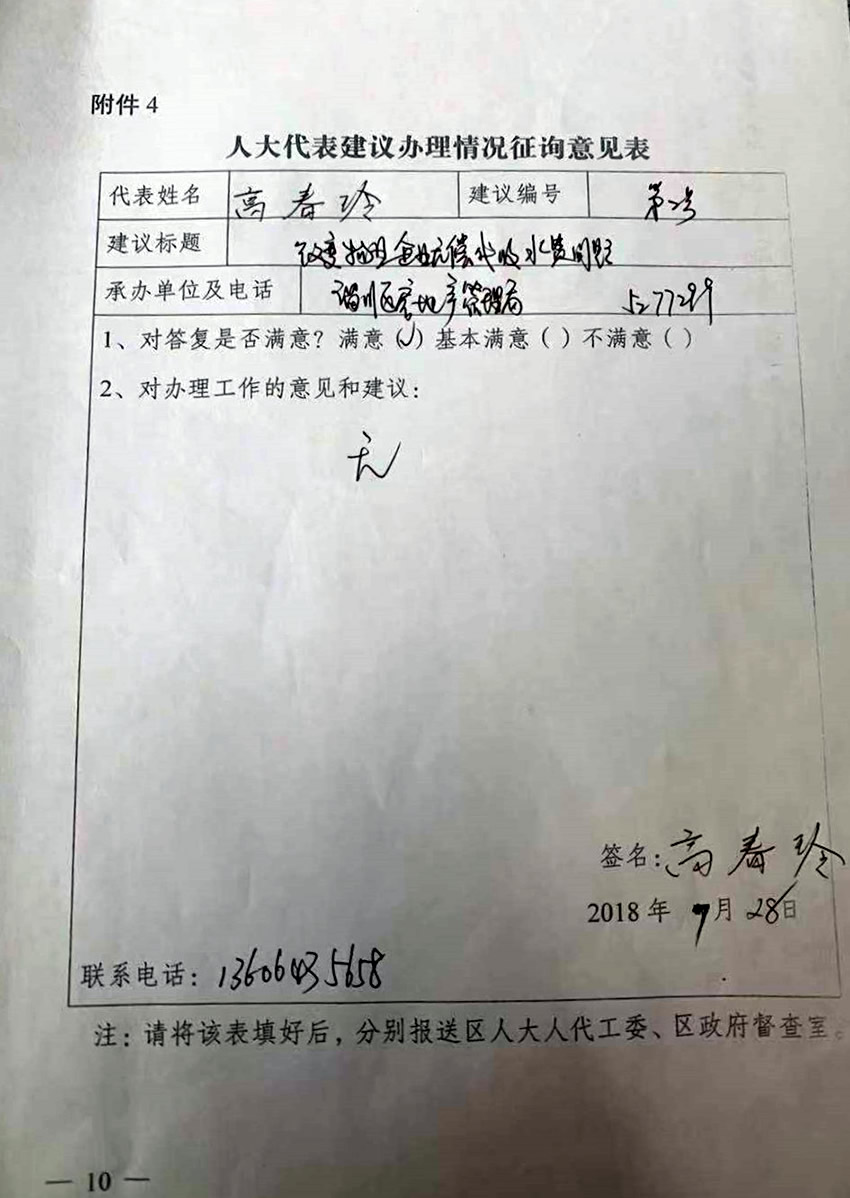 附件 4
人大代表建议办理情况征询意见表
代表姓名 高春玲 建议编号 第2号
建议标题 改变物业企业无偿代收水费问题
承办单位及电话 淄川区房地产管理局 5277299
1、对答复是否满意？满意（√）基本满意（ ）不满意（ ）
2、对办理工作的意见和建议：
无
签名：高春玲
2018 年 9月 28日
联系电话：13606435658
注：请将该表填好后，分别报送区人大人代工委、区政府督查室。
— 10 —